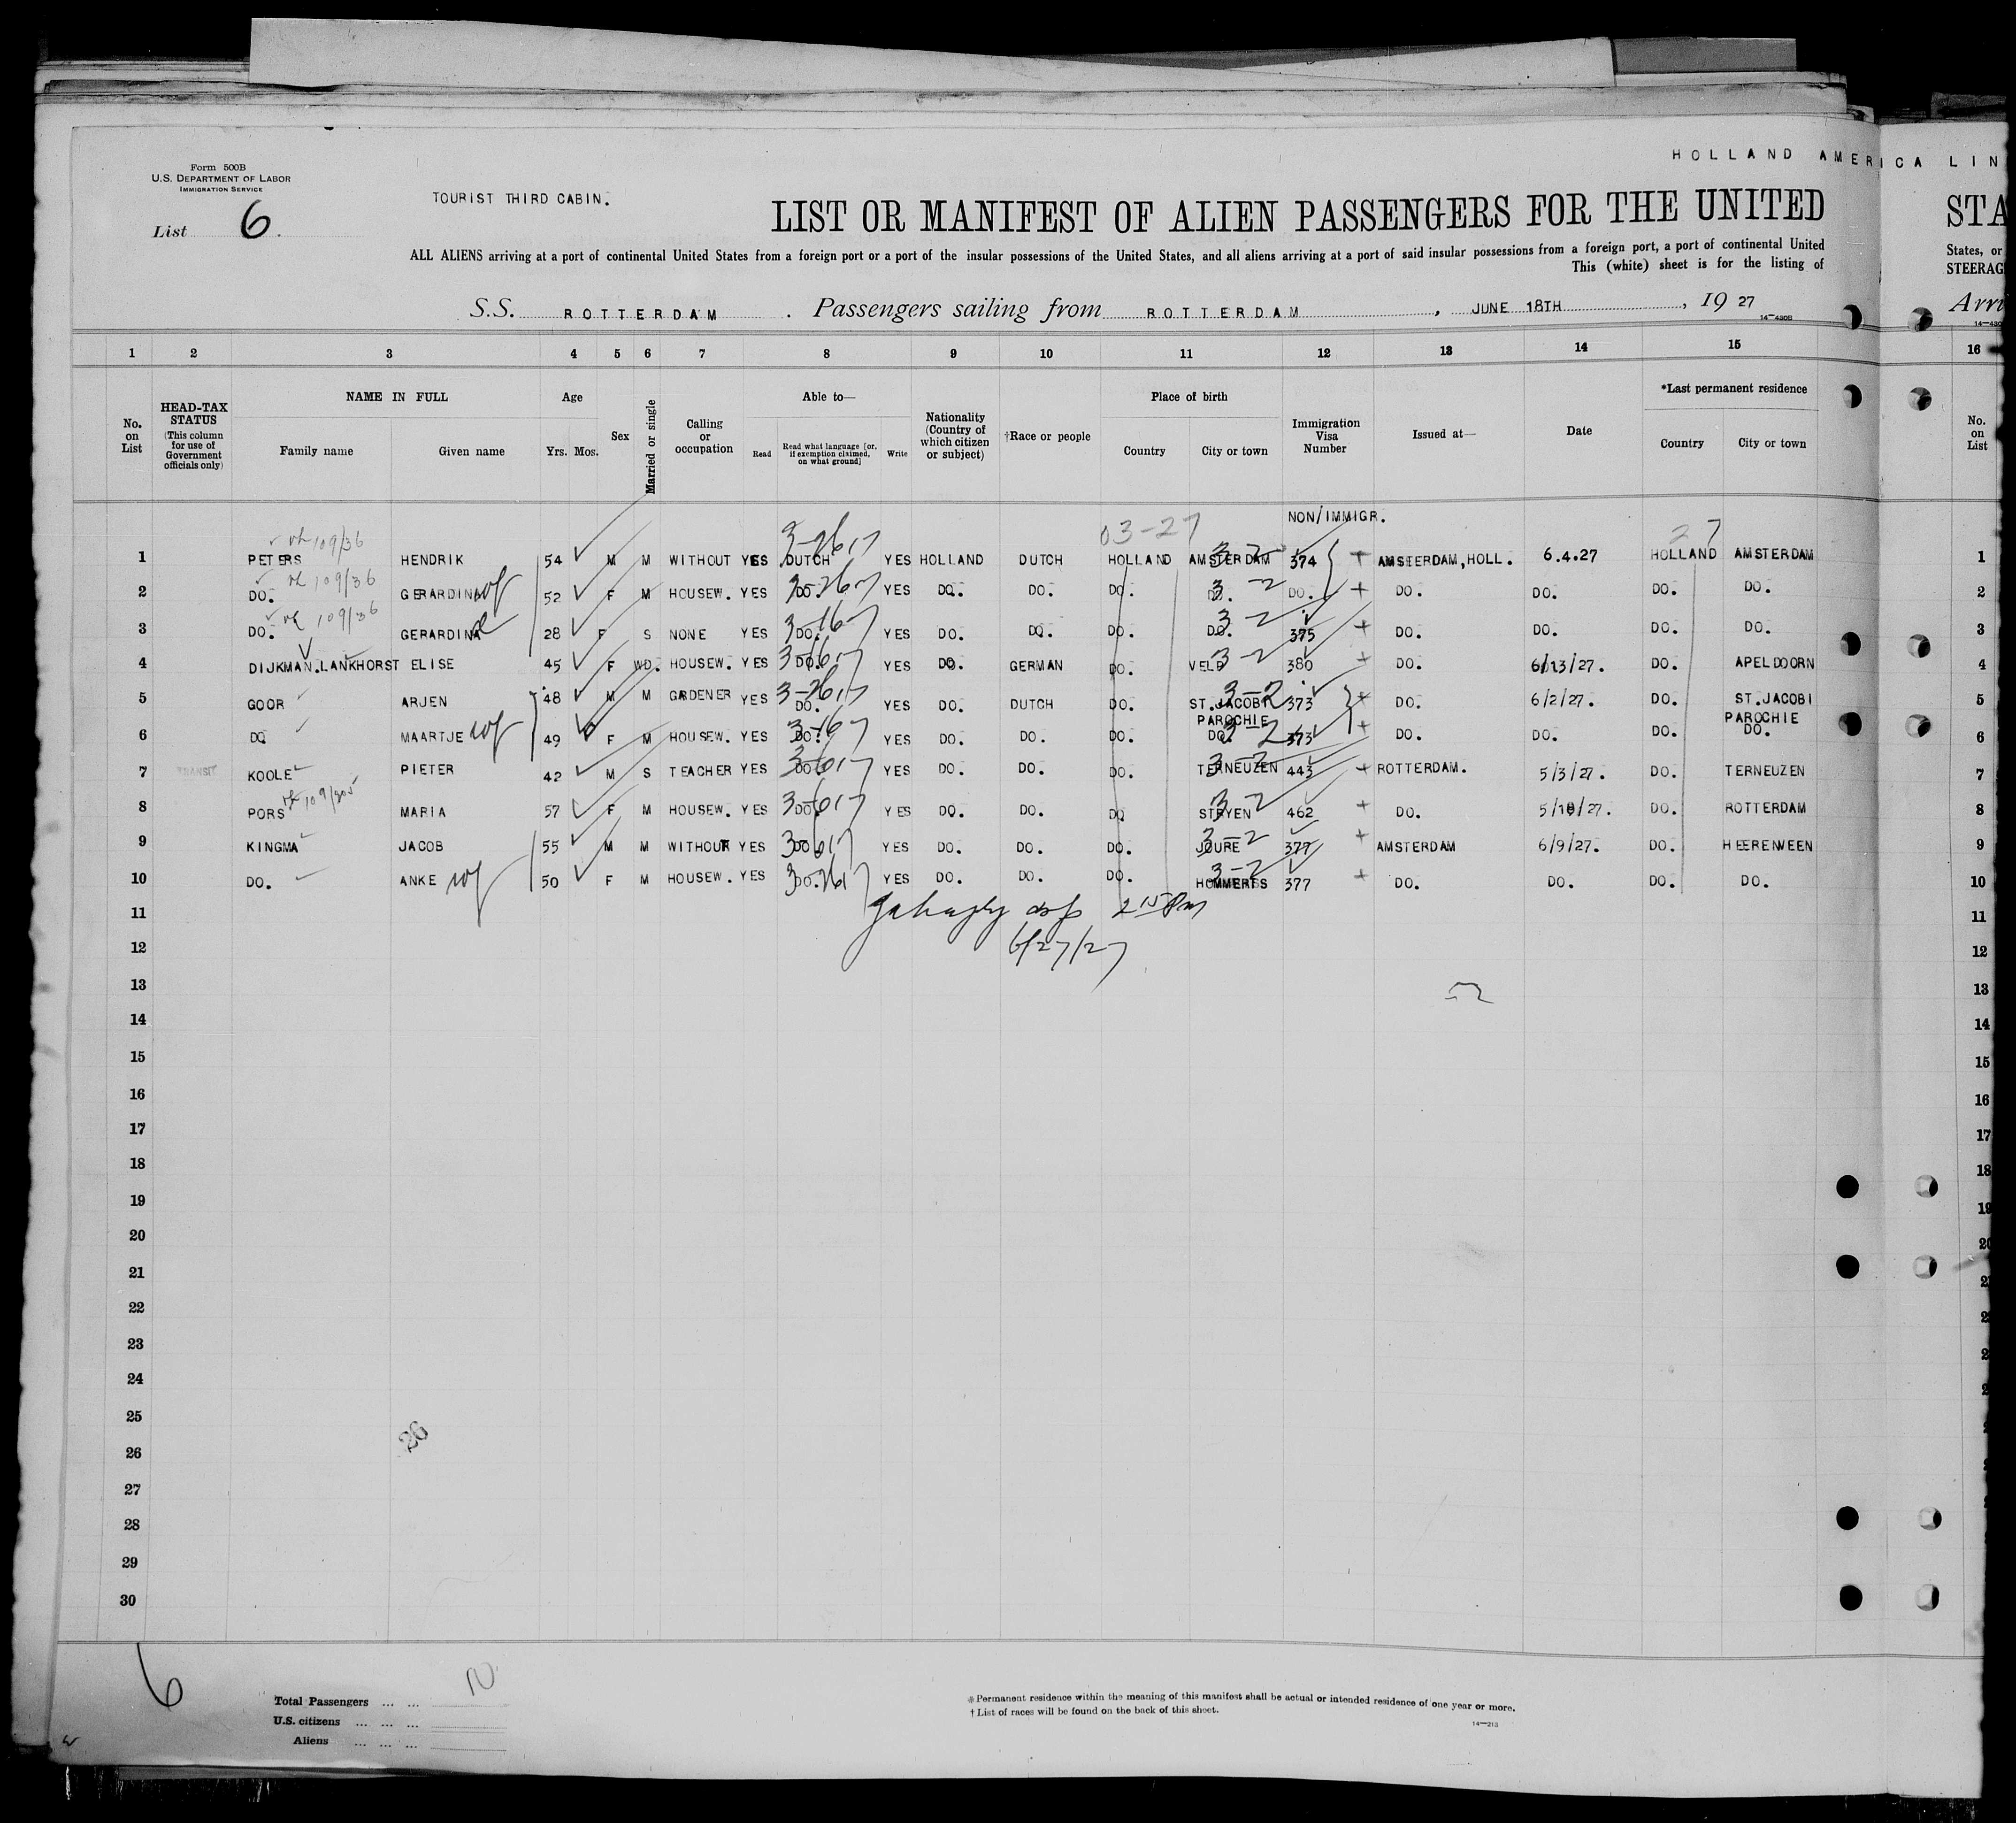 HOLLAND AMERICA LIN
Form 500B
U.S. DEPARTMENT OF LABOR
IMMIGRATION SERVICE
TOURIST THIRD CABIN.
List 6.
LIST OR MANIFEST OF ALIEN PASSENGERS FOR THE UNITED STA
ALL ALIENS arriving at a port of continental United States from a foreign port or a port of the insular possessions of the United States, and all aliens arriving at a port of said insular possessions from a foreign port, a port of continental United States, or
This (white) sheet is for the listing of STEERAG
S.S. ROTTERDAM . Passengers sailing from ROTTERDAM , JUNE 18TH , 19 27 Arri
14-430B 14-430
1 2 3 4 5 6 7 8 9 10 11 12 13 14 15 16
No. on List
HEAD-TAX STATUS
(This column for use of Government officials only)
NAME IN FULL
Family name Given name
Age
Yrs. Mos.
Sex
Married or single
Calling or occupation
Able to—
Read Read what language [or, if exemption claimed, on what ground] Write
Nationality (Country of which citizen or subject)
†Race or people
Place of birth
Country City or town
Immigration Visa Number
Issued at—
Date
*Last permanent residence
Country City or town
No. on List
NON/IMMIGR.
03-27 27
109/36 3-2617
1 PETERS HENDRIK 54 M M WITHOUT YES DUTCH YES HOLLAND DUTCH HOLLAND AMSTERDAM 374 AMSTERDAM, HOLL. 6.4.27 HOLLAND AMSTERDAM 1
109/36
2 DO. GERARDINA wf 52 F M HOUSEW. YES DO. YES DO. DO. DO. DO. DO. DO. DO. DO. DO. 2
109/36
3 DO. GERARDINA d 28 F S NONE YES DO. YES DO. DO. DO. DO. 375 DO. DO. DO. DO. 3
4 DIJKMAN.LANKHORST ELISE 45 F WD. HOUSEW. YES DO. YES DO. GERMAN DO. VELP 380 DO. 6/13/27. DO. APELDOORN 4
5 GOOR ARJEN 48 M M GARDENER YES DO. YES DO. DUTCH DO. ST.JACOBI PAROCHIE 373 DO. 6/2/27. DO. ST.JACOBI PAROCHIE 5
6 DO MAARTJE wf 49 F M HOUSEW. YES DO. YES DO. DO. DO. DO. 373 DO. DO. DO. DO. 6
7 TRANSIT KOOLE PIETER 42 M S TEACHER YES DO. YES DO. DO. DO. TERNEUZEN 443 ROTTERDAM. 5/3/27. DO. TERNEUZEN 7
8 PORS 109/305 MARIA 57 F M HOUSEW. YES DO. YES DO. DO. DO STRYEN 462 DO. 5/18/27. DO. ROTTERDAM 8
9 KINGMA JACOB 55 M M WITHOUT YES DO. YES DO. DO. DO. JOURE 377 AMSTERDAM 6/9/27. DO. HEERENVEEN 9
10 DO. ANKE wf 50 F M HOUSEW. YES DO. YES DO. DO. DO. HOMMERTS 377 DO. DO. DO. DO. 10
11 2 15 Pm 11
12 6/27/27 12
13 13
14 14
15 15
16 16
17 17
18 18
19 19
20 20
21
22
23
24
25
26
26
27
28
29
30
6
Total Passengers ... ... 10
U.S. citizens ... ... ...
Aliens ... ... ...
* Permanent residence within the meaning of this manifest shall be actual or intended residence of one year or more.
† List of races will be found on the back of this sheet.
14-213